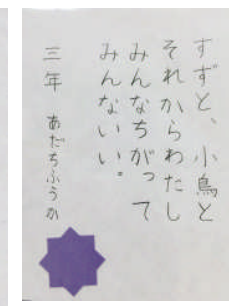 すずと、小鳥と
それからわたし
みんなちがって
みんないい。
三年 あだちふうか